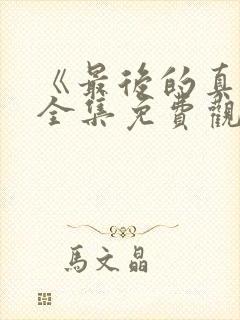 《最後的真
全集免費觀
馬文晶